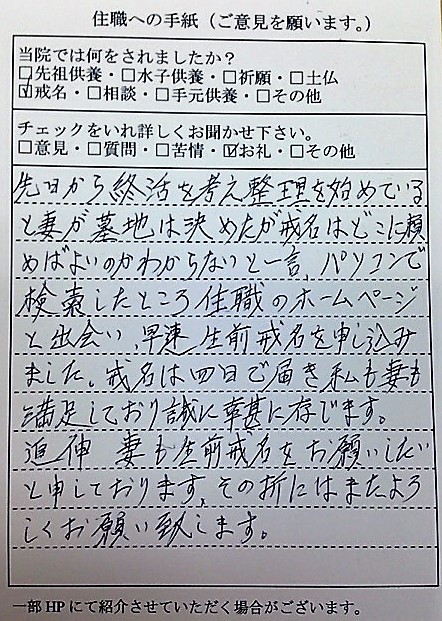 住職への手紙（ご意見を願います。）
当院では何をされましたか？
□先祖供養・□水子供養・□祈願・□土仏
☑戒名・□相談・□手元供養・□その他
チェックをいれ詳しくお聞かせ下さい。
□意見・□質問・□苦情・☑お礼・□その他
先日から終活を考え整理を始めている
と妻が墓地は決めたが戒名はどこに頼
めばよいのかわからないと一言、パソコンで
検索したところ住職のホームページ
と出会い、早速生前戒名を申し込み
ました。戒名は四日で届き私も妻も
満足しており誠に幸甚に存じます。
追伸 妻も生前戒名をお願いしたい
と申しております、その折にはまたよろ
しくお願い致します。
一部HPにて紹介させていただく場合がございます。